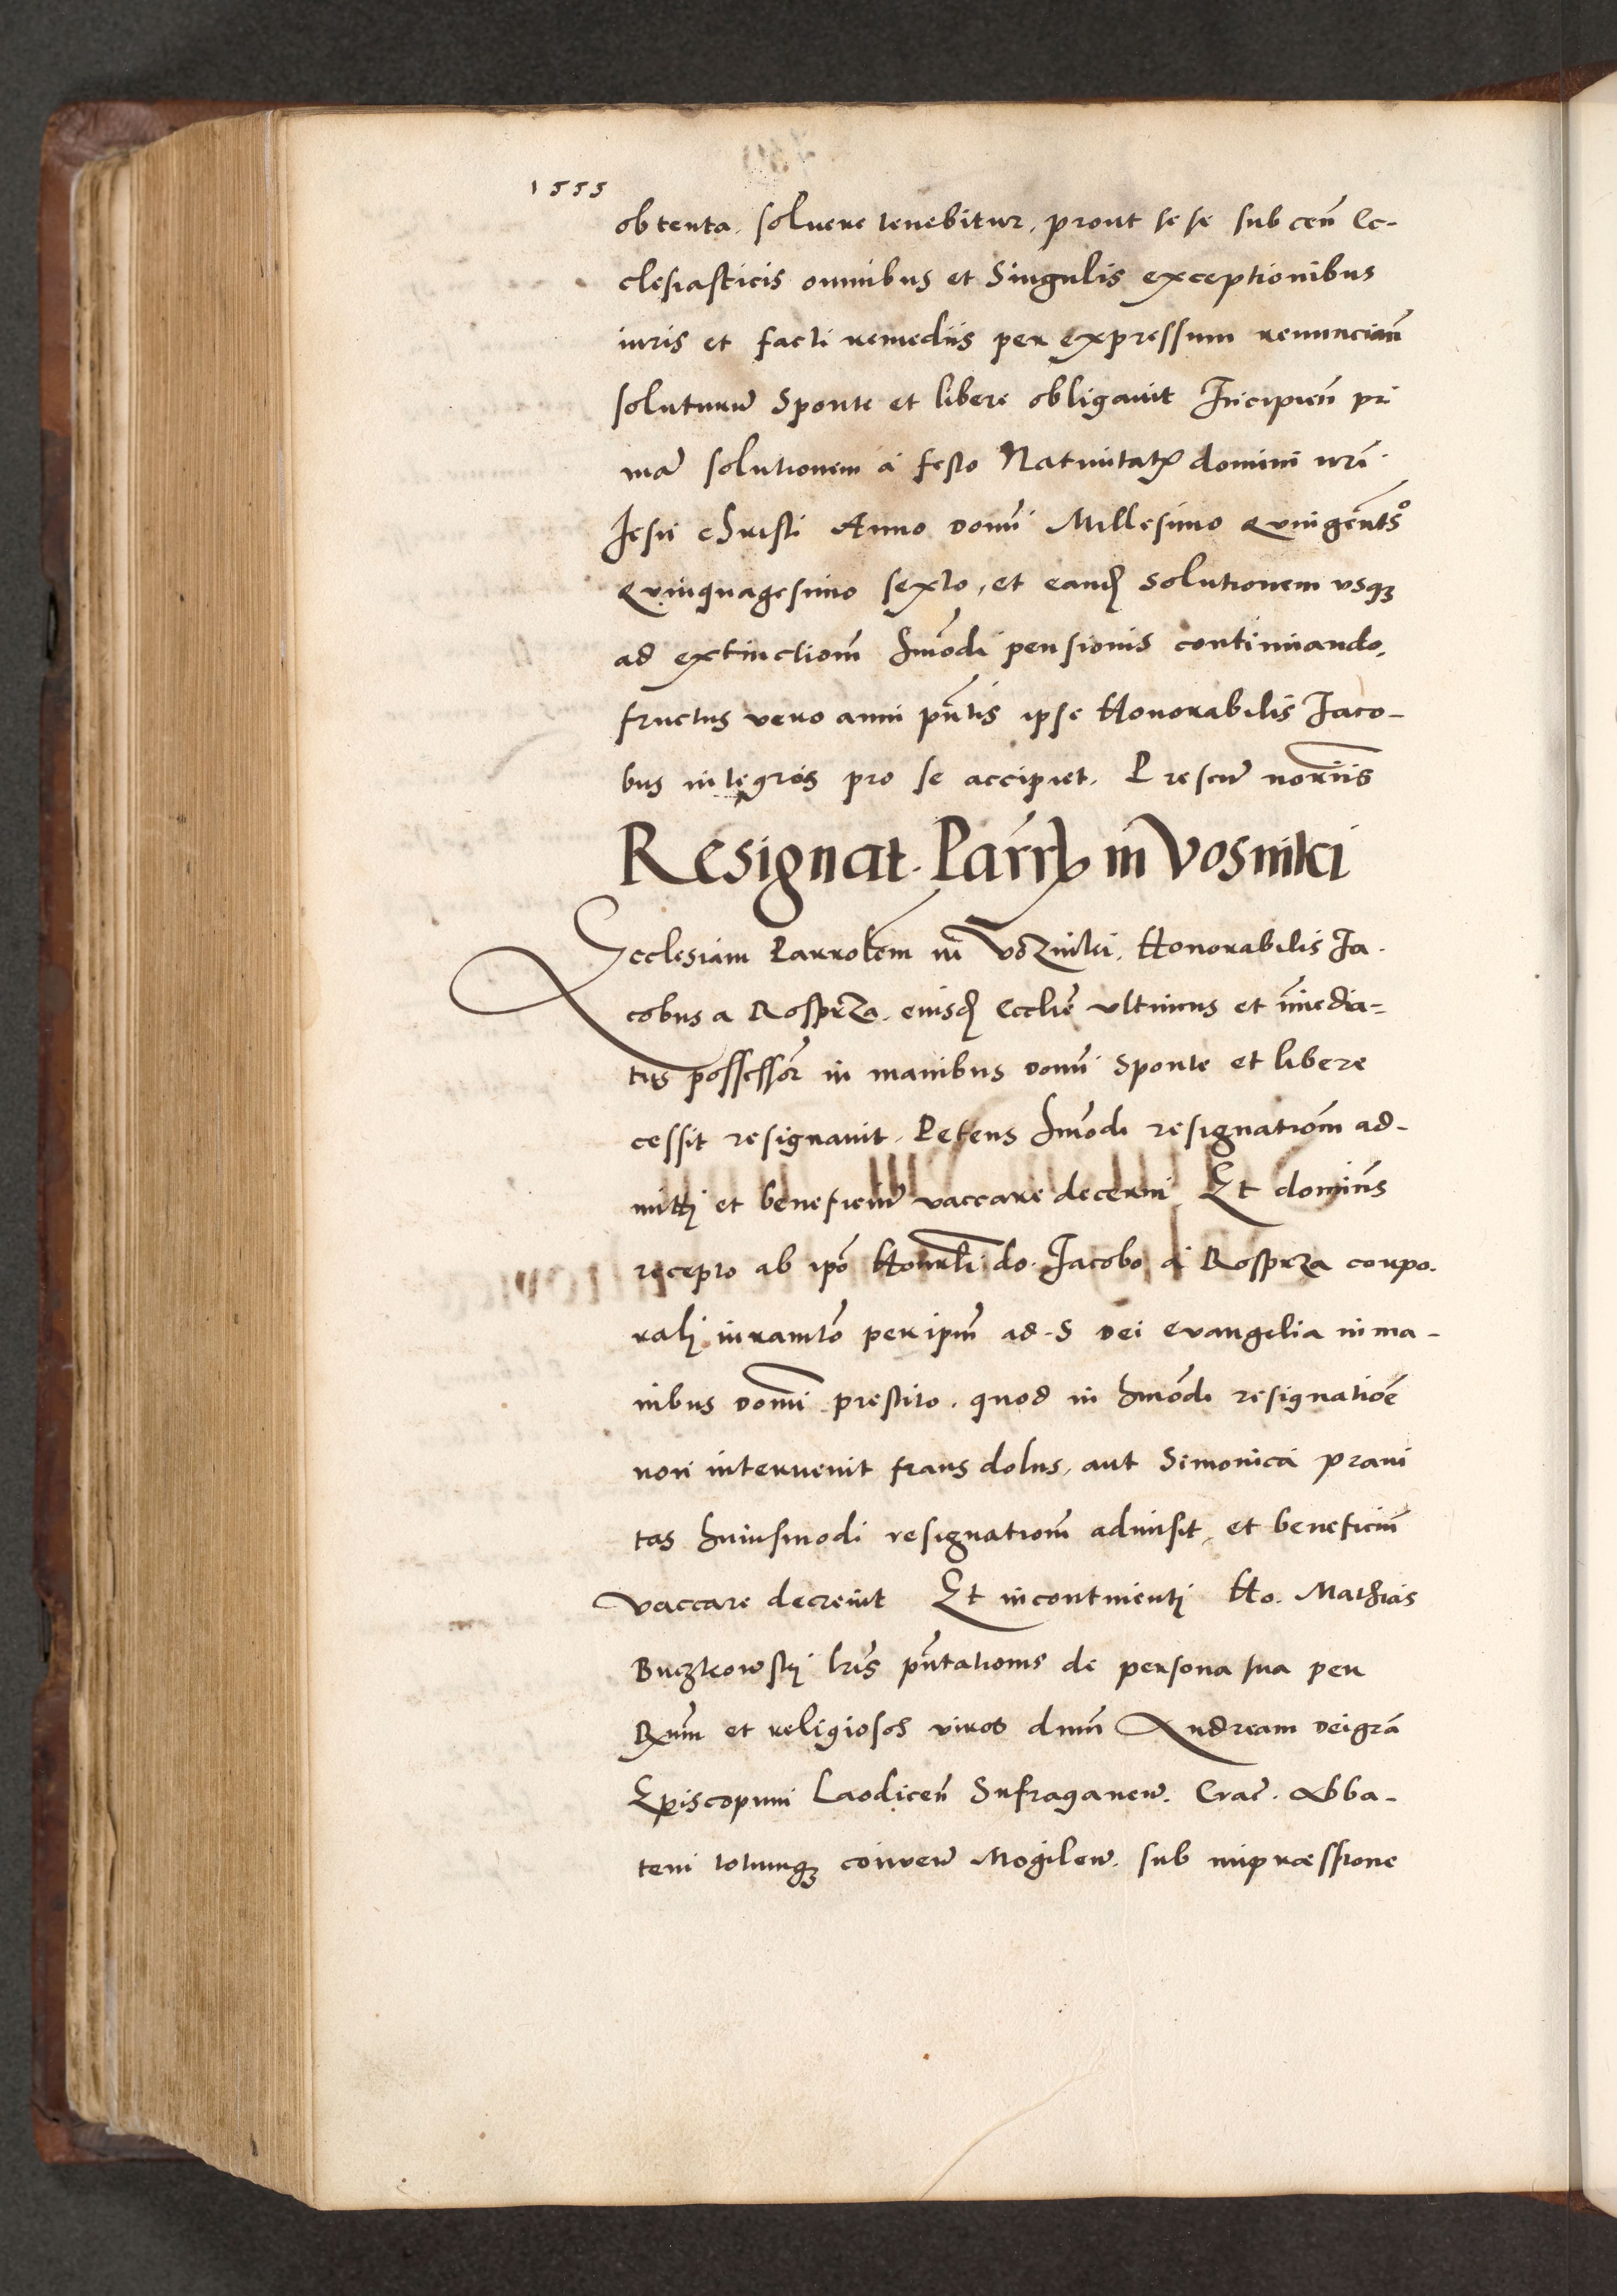 1555
obtenta. soluere tenebitur, prout sese sub cen̄ Ec-
clesiasticis omnibus et Singulis exceptionibus
iuris et facti remediis per expressum renuncian̄
soluturū Sponte et libere obligauit Incipien̄ pri
mā solutionem á festo Natiuitatꝭ domini nr̄i
Jesu christi Anno domī Millesimo Quingent͂sº
Quinquagesimo sexto, et eandꝭ solutionem vsqꝫ
ad extinctiom̄ hmōdi pensionis continuando,
fructus vero anni pn̄tis ipse Honorabilis Jaco-
bus integros pro se accipiet. Presen̄ nor̄iis
Resignat. Parrˡ in Vosniki
Ecclesiam Parrolem̄ in Vozniki, Honorabilis Ja-
cobus a Rosprza. eiusdꝭ Ecclie̅ vltimus et im̄edia-
tus possessor in manibus domī Sponte et libere
cessit resignauit. Petens hmōdi resignatiom̄ ad-
mitti et beneficiū vaccare decerni Et dominus
recepto ab ipo̅ Honorl̄i do. Jacobo á Rosprza corpo-
rali iuramto̅ per ipm̄ ad. S Dei euangelia in ma-
nibus domi̅ prestito. quod in hmōdi resignatioe̅
non interuenit fraus dolus, aut Simonica praui
tas huiusmodi resignatiom̄ admisit, et beneficiū
vaccare decreuit Et incontinenti Ho. Mathias
Buczkowski lr̄is pn̄tationis de persona sua per
Rx̄m et religiosos viros dnm̄ Andream Dei gra̅
Episcopum Laodicen̄ Sufraganeū. Crac̄. Abba-
tem totumqꝫ conuen̄ Mogilen̄. sub impræssione